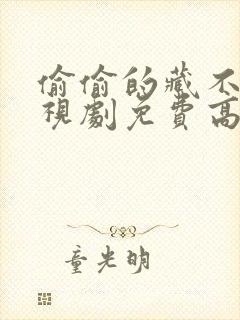 偷偷的藏不
視劇免費高
童光明